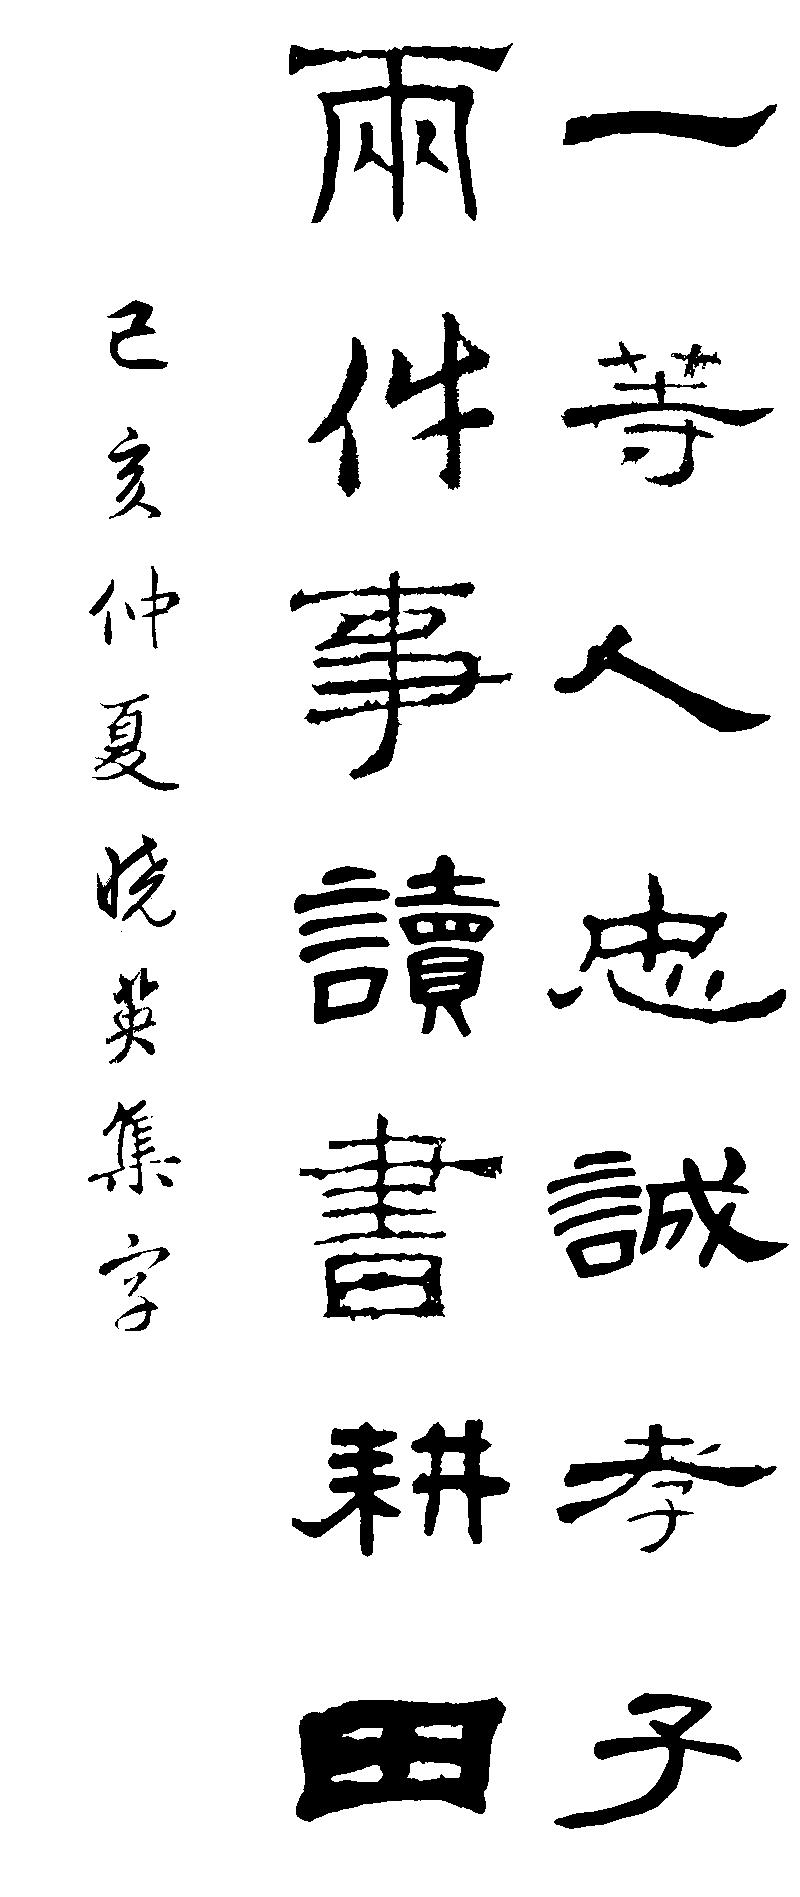 一等人忠誠孝子
兩件事讀書耕田
己亥仲夏晓英集字